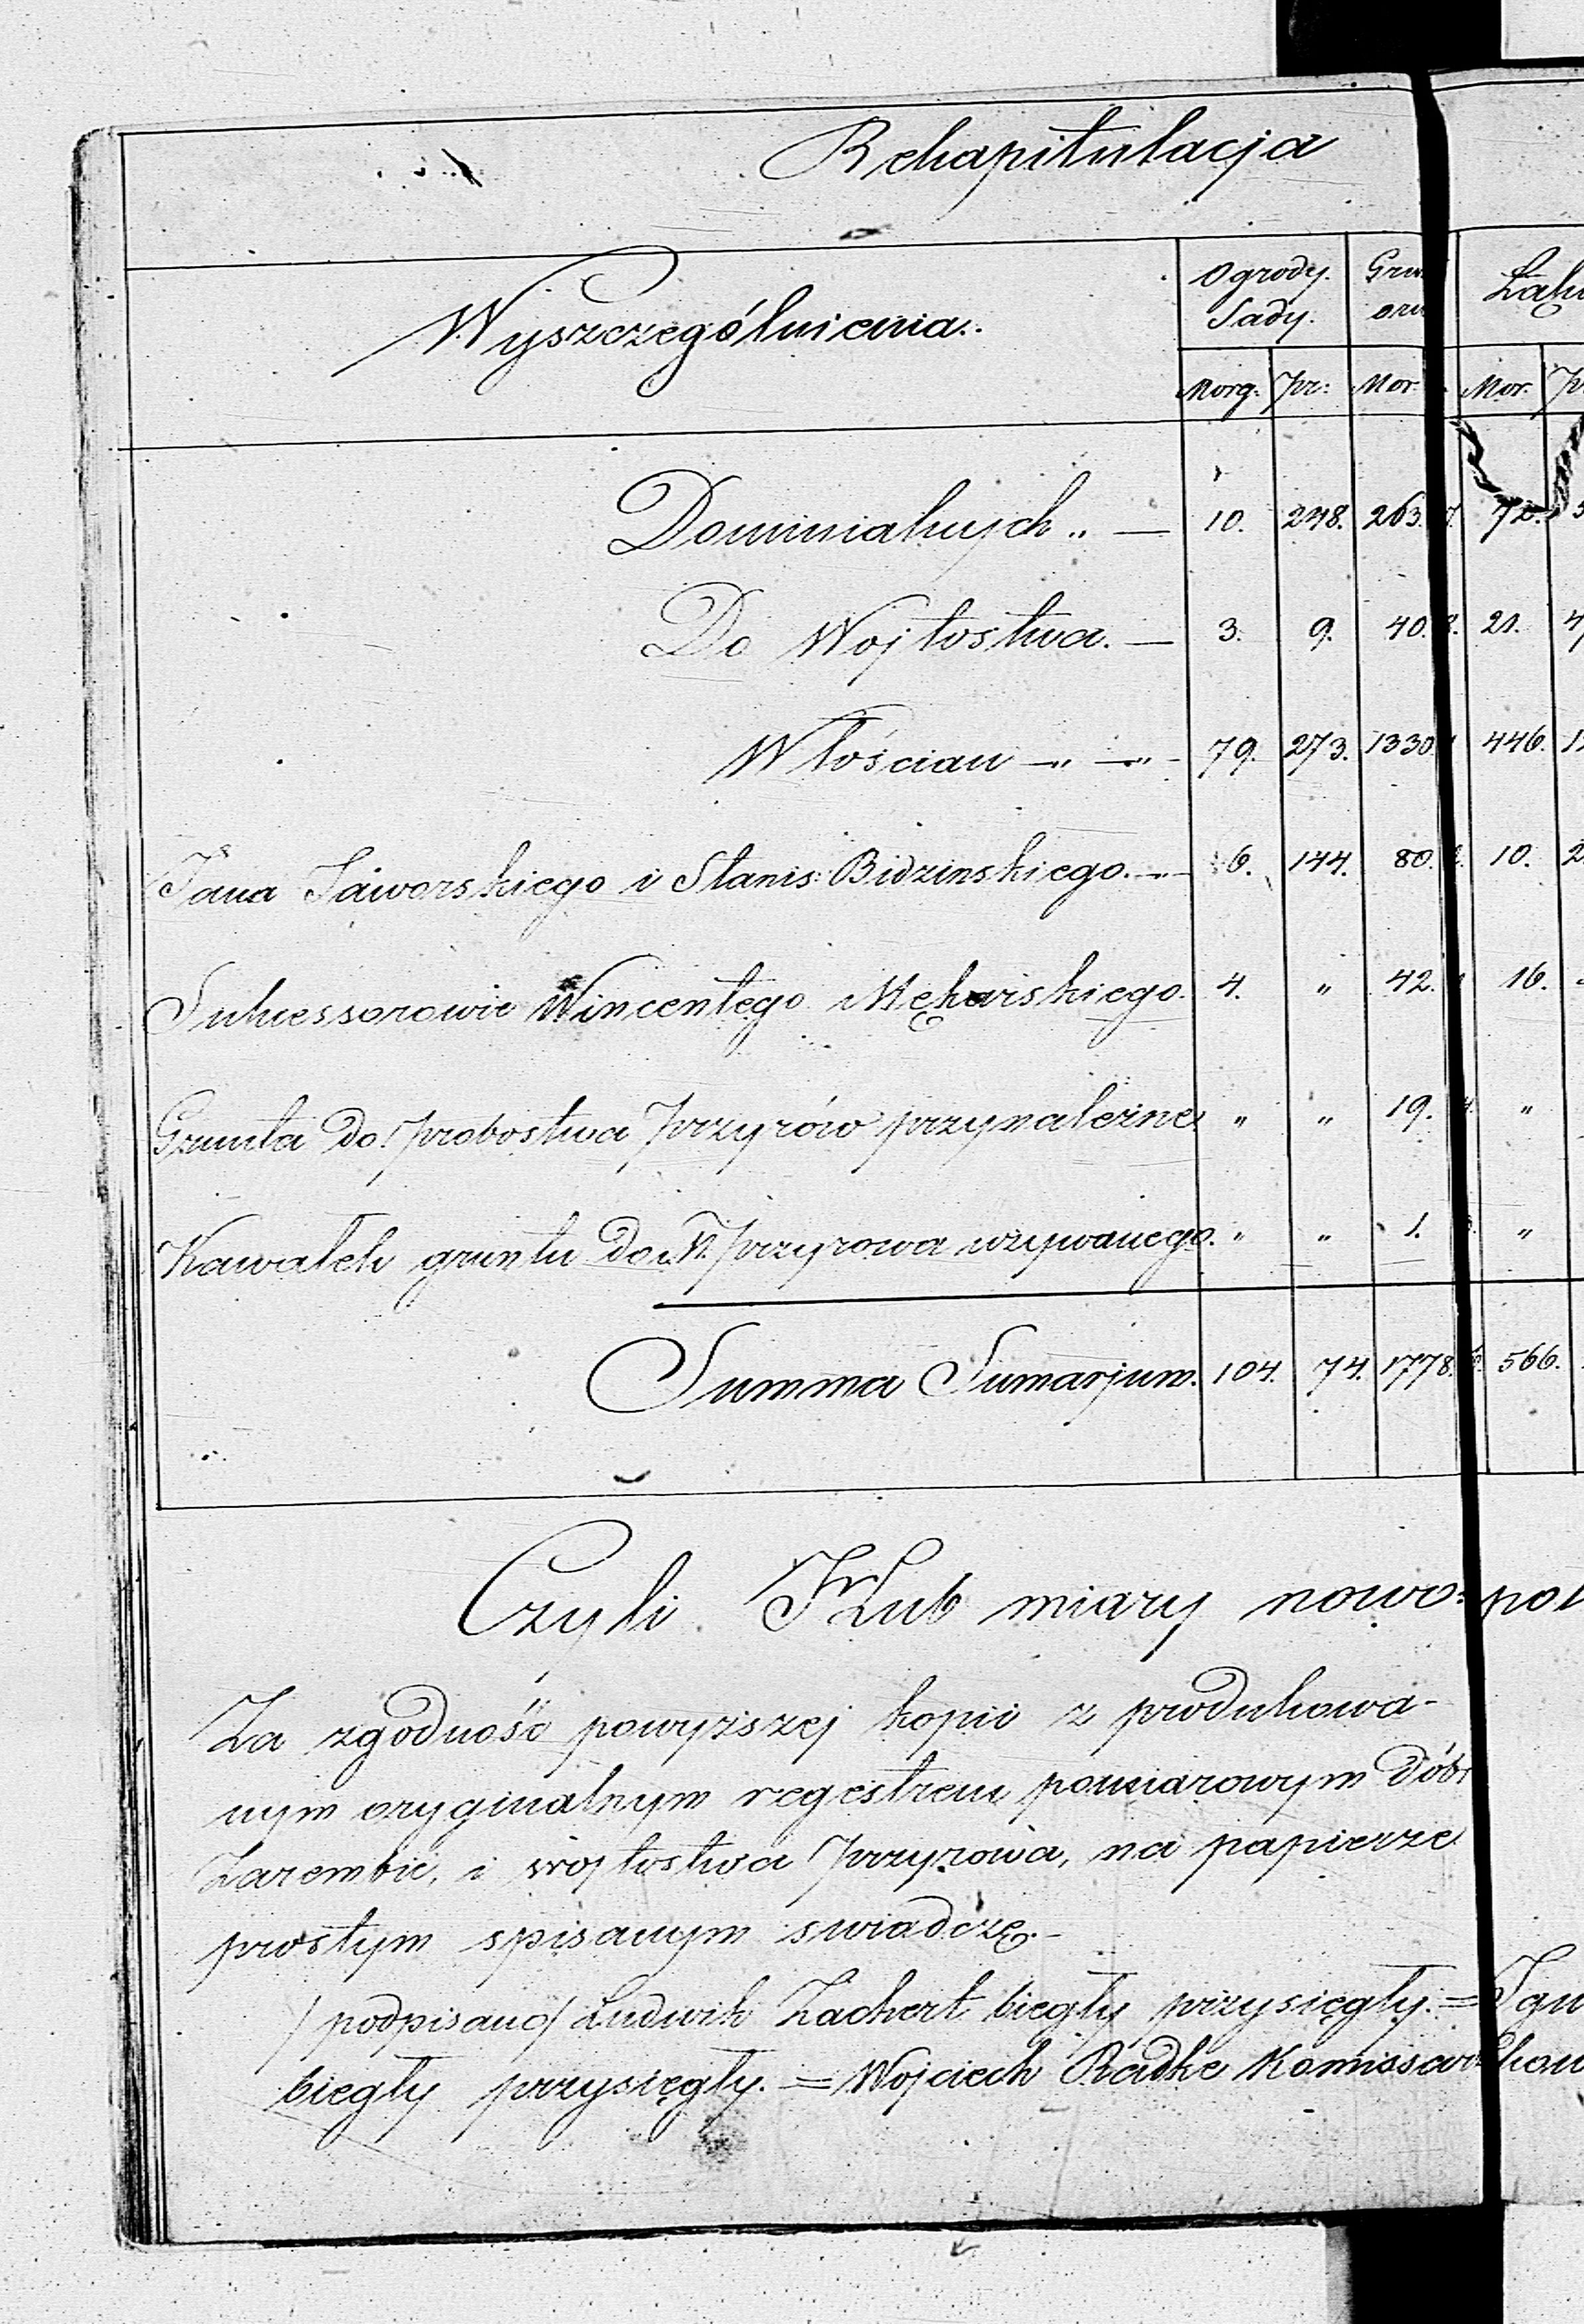 Rekapitulacja
Wyszczególnienia.
Ogrody. Sady.
Morg: Pr: Mor. Mor.
Dominialnych „ — 10. 248. 263. 72.
Do Wojtostwa. — 3. 9. 40. 21.
Włościan —„ —„ - 79. 273. 1330. 446.
Jana Jáworskiego i Stanis: Bidzinskiego. — 6. 144. 80. 10.
Sukcessorowie Wincentego 4. „ 42. 16.
Grunta do probostwa Przyrów przynależne „ „ 19. „
Kawałek gruntu do Przyrowa używanego. „ „ 1. „
Summa Sumarjum. 104. 74. 1778. 566.
Czyli miary nowo-pol
Za zgodność powyższej kopii z produkowa-
nym oryginalnym regestrem pomiarowym dóbr
Zarembic, i wojtostwa Przyrowa, na papierze
prostym spisanym swiadczę.-
/podpisano/ Ludwik Zachert biegły przysięgły. = Ign
biegły przysięgły. = Wojciech Radke